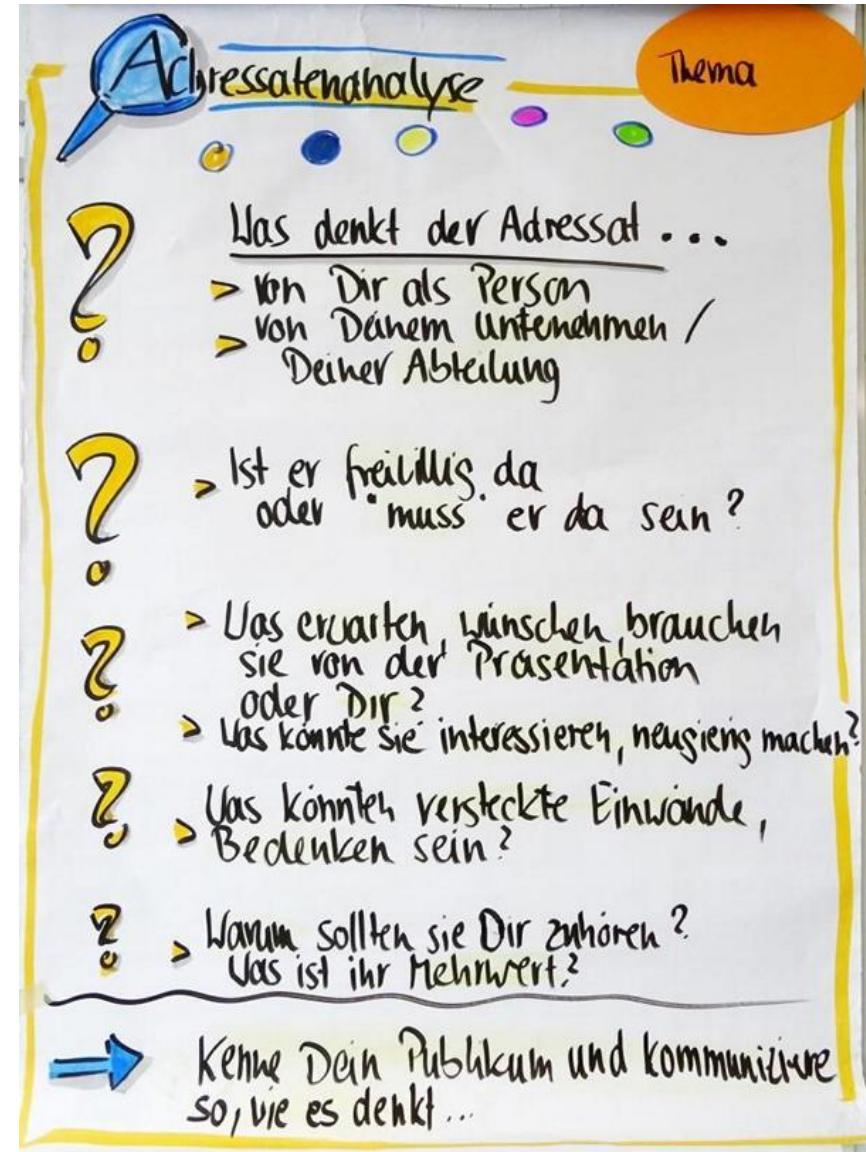 Adressatenanalyse
Thema
Was denkt der Adressat ...
> von Dir als Person
> von Deinem Unternehmen /
Deiner Abteilung
> Ist er freiwillig da
oder "muss" er da sein?
> Was erwarten, wünschen, brauchen
sie von der Präsentation
oder Dir?
> Was könnte sie interessieren, neugierig machen?
> Was könnten versteckte Einwände,
Bedenken sein?
> Warum sollten sie Dir zuhören?
Was ist ihr Mehrwert?
Kenne Dein Publikum und kommuniziere
so, wie es denkt...